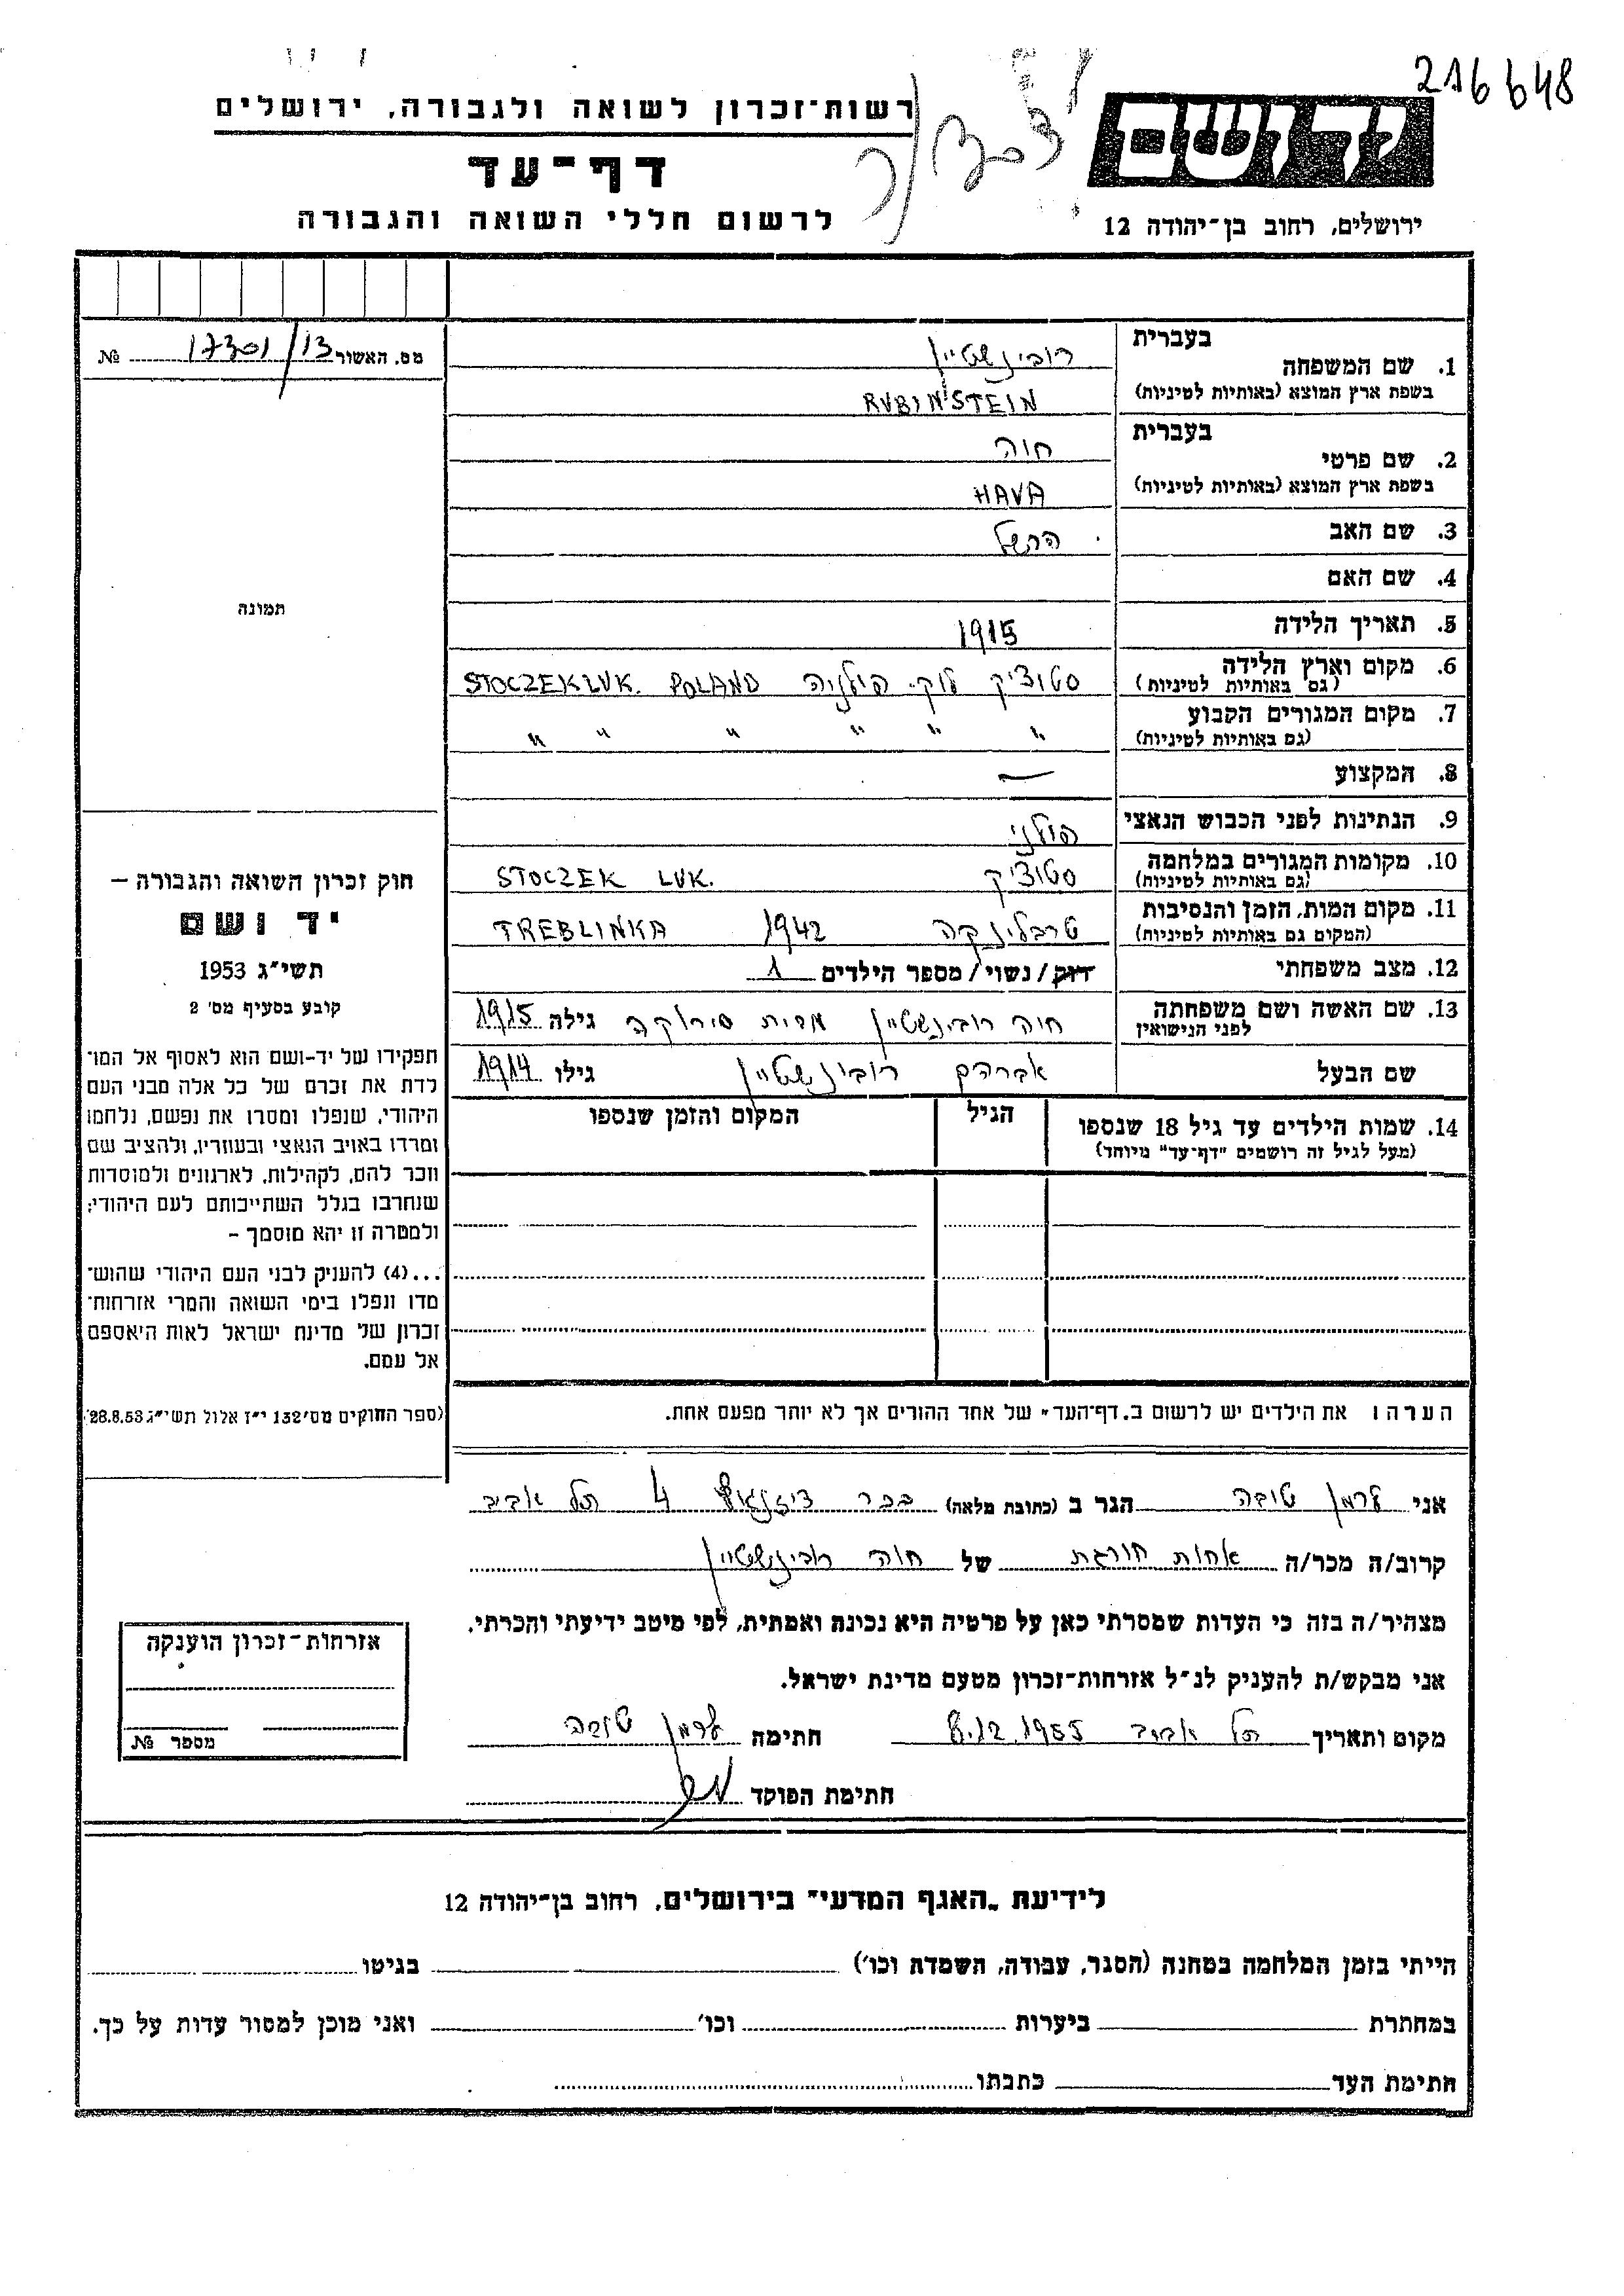 216648
רשות־זכרון לשואה ולגבורה, ירושלים
דף־עד
לרשום חללי השואה והגבורה
ידושם
ירושלים, רחוב בן־יהודה 12
מס. האשור 17301/13 №
תמונה
חוק זכרון השואה והגבורה –
יד ושם
תשי״ג 1953
קובע בסעיף מס׳ 2
תפקידו של יד-ושם הוא לאסוף אל המו־
לדת את זכרם של כל אלה מבני העם
היהודי, שנפלו ומסרו את נפשם, נלחמו
ומרדו באויב הנאצי ובעוזריו, ולהציב שם
וזכר להם, לקהילות, לארגונים ולמוסדות
שנחרבו בגלל השתייכותם לעם היהודי;
ולמטרה זו יהא מוסמך –
...(4) להעניק לבני העם היהודי שהוש־
מדו ונפלו בימי השואה והמרי אזרחות־
זכרון של מדינת ישראל לאות היאספם
אל עמם.
(ספר החוקים מס׳ 132 י״ז אלול תשי״ג 28.8.53)
בעברית
1. שם המשפחה רובינשטיין
בשפת ארץ המוצא (באותיות לטיניות) RUBINSTEIN
בעברית
2. שם פרטי חוה
בשפת ארץ המוצא (באותיות לטיניות) HAVA
3. שם האב הרשל
4. שם האם
5. תאריך הלידה 1915
6. מקום וארץ הלידה סטוציק לוק. פולניה STOCZEK LUK. POLAND
(גם באותיות לטיניות)
7. מקום המגורים הקבוע " " " " " "
(גם באותיות לטיניות)
8. המקצוע —
9. הנתינות לפני הכבוש הנאצי פולני
10. מקומות המגורים במלחמה סטוציק STOCZEK LUK.
(גם באותיות לטיניות)
11. מקום המות, הזמן והנסיבות טרבלינקה 1942 TREBLINKA
(המקום גם באותיות לטיניות)
12. מצב משפחתי רווק/נשוי/מספר הילדים 1
13. שם האשה ושם משפחתה חוה רובינשטיין מבית סירוקה גילה 1915
לפני הנישואין
שם הבעל אברהם רובינשטיין גילו 1914
14. שמות הילדים עד גיל 18 שנספו הגיל המקום והזמן שנספו
(מעל לגיל זה רושמים "דף־עד" מיוחד)
הערה: את הילדים יש לרשום ב„דף־העד" של אחד ההורים אך לא יותר מפעם אחת.
אני ערמן טובה הגר ב (כתובת מלאה) ככר דיזנגוף 4 תל אביב
קרוב/ה מכר/ה אחות חורגת של חוה רובינשטיין
מצהיר/ה בזה כי העדות שמסרתי כאן על פרטיה היא נכונה ואמתית, לפי מיטב ידיעתי והכרתי.
אני מבקש/ת להעניק לנ״ל אזרחות־זכרון מטעם מדינת ישראל.
מקום ותאריך תל אביב 8.12.1955 חתימה ערמן טובה
חתימת הפוקד
אזרחות־זכרון הוענקה
מספר №
לידיעת „האגף המדעי" בירושלים, רחוב בן־יהודה 12
הייתי בזמן המלחמה במחנה (הסגר, עבודה, השמדת וכו׳) בגיטו
במחתרת ביערות וכו׳ ואני מוכן למסור עדות על כך.
חתימת העד כתבתו